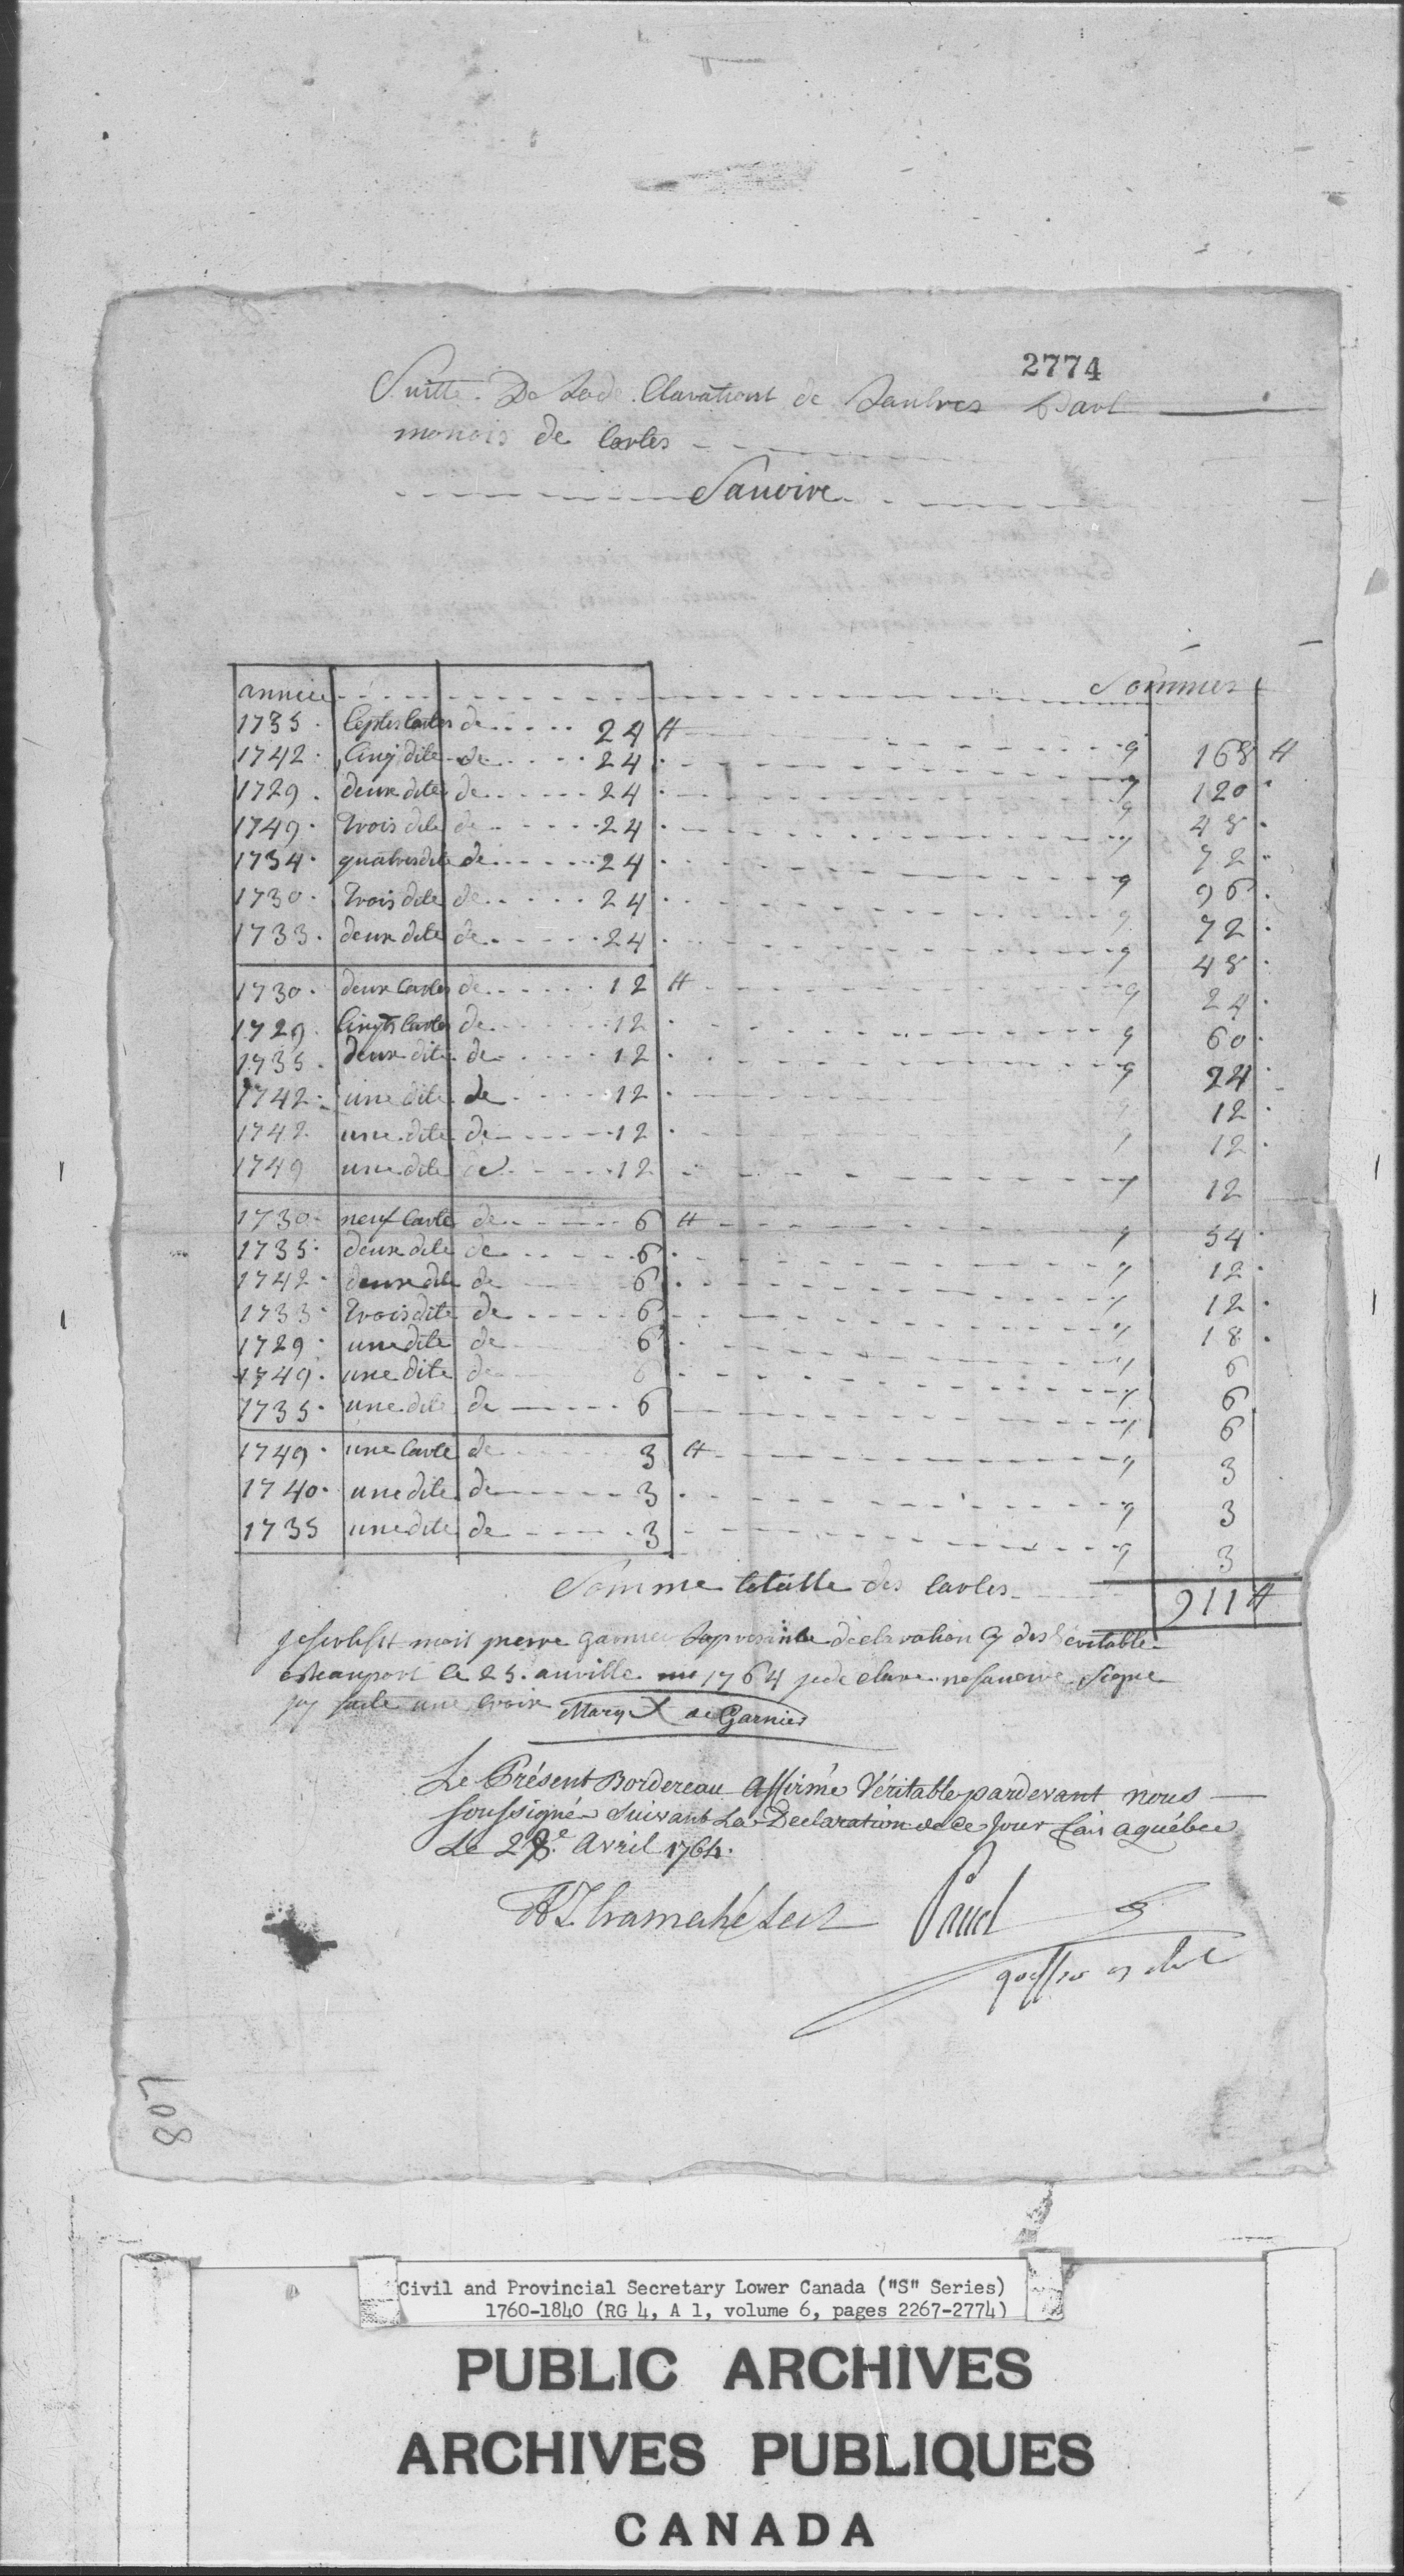 2774
Suitte De la de Clarationt de Lautres Part
monois de Cartes
Sauoire
année Sommes
1735 Septes Cartes de 24 ₶ 168 ₶
1742 Cinq dite de 24 120
1729 deux dites de 24 48
1749 trois dite de 24 72
1734 quatres dite de 24 96
1730 trois dite de 24 72
1733 deux dite de 24 48
1730 deux Cartes de 12 ₶ 24
1729 Cinq Cartes de 12 60
1735 deux dite de 12 24
1742 une dite de 12 12
1742 une dite de 12 12
1749 une dite de 12 12
1730 neuf Carte de 6 ₶ 54
1735 deux dite de 6 12
1742 deux dite de 6 12
1733 trois dite de 6 18
1729 une dite de 6 6
1749 une dite de 6 6
1735 une dite de 6 6
1749 une Carte de 3 ₶ 3
1740 une dite de 3 3
1735 une dite de 3 3
Somme totalle des Cartes 911 ₶
moit pierre garnier la presente déclaration veritable
le 25. auville 1764 je de clare ne sauoire Signe
jay faite une Croix Marq X de Garnier
Le Présent Bordereau affirmé Véritable pardevant nous
soussigné suivant La Declaration de ce Jour fait a québec
Le 28e. Avril 1764.
H T Cramahé Secr Panet
greffier
807
Civil and Provincial Secretary Lower Canada ("S" Series)
1760-1840 (RG 4, A 1, volume 6, pages 2267-2774)
PUBLIC ARCHIVES
ARCHIVES PUBLIQUES
CANADA